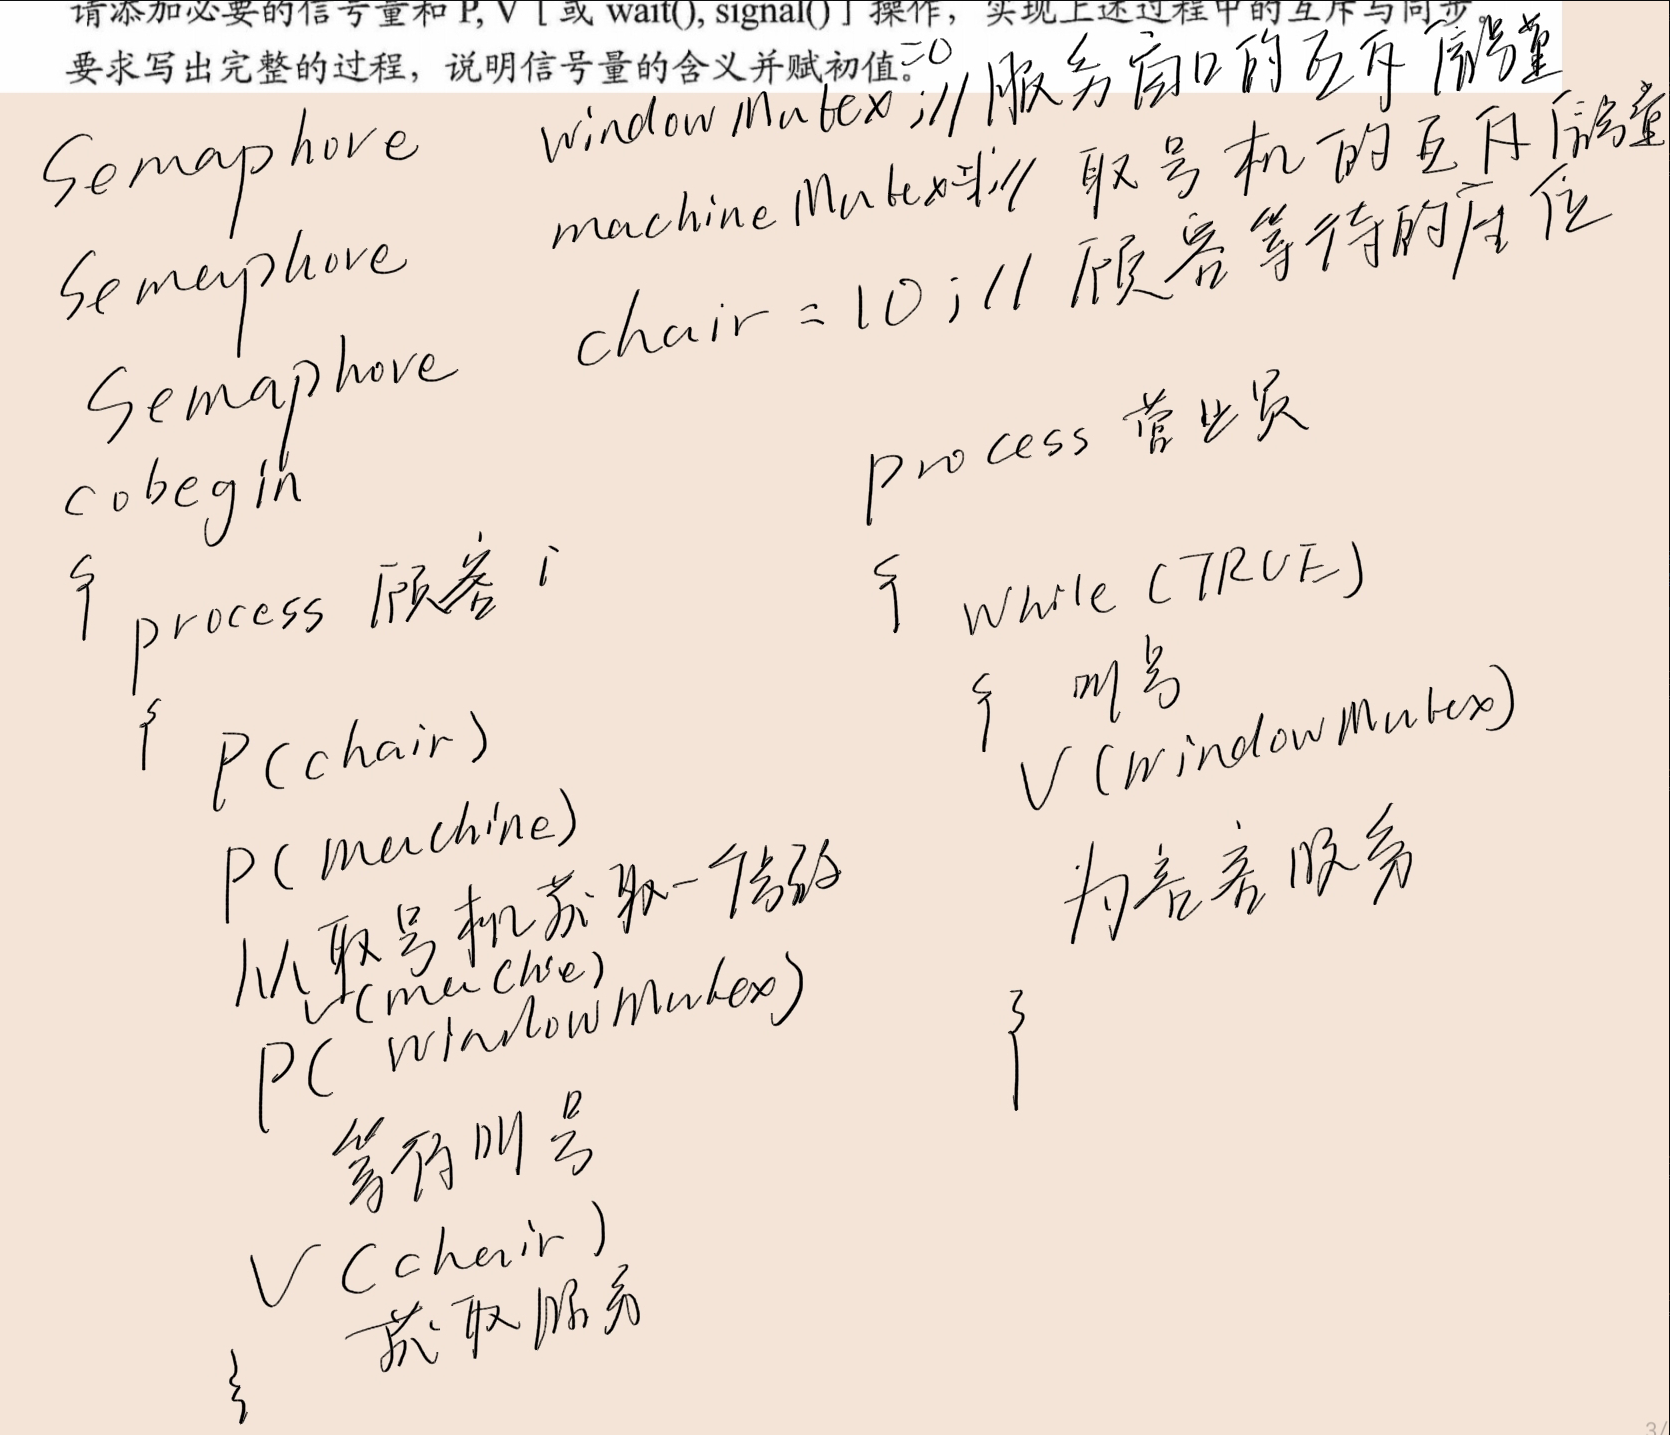 请添加必要的信号量和 P, V [或 wait(), signal()] 操作，实现上述过程中的互斥与同步。
要求写出完整的过程，说明信号量的含义并赋初值。
Semaphore windowMutex=0;//服务窗口的互斥信号量
Semaphore machineMutex=1;//取号机的互斥信号量
Semaphore chair=10;//顾客等待的座位
cobegin
{
process 顾客 i
{
P(chair)
P(machine)
从取号机获取一个号码
V(machie)
P(windowMutex)
等待叫号
V(chair)
获取服务
}
process 营业员
{
while(TRUE)
{ 叫号
V(windowMutex)
为客服务
}
3/